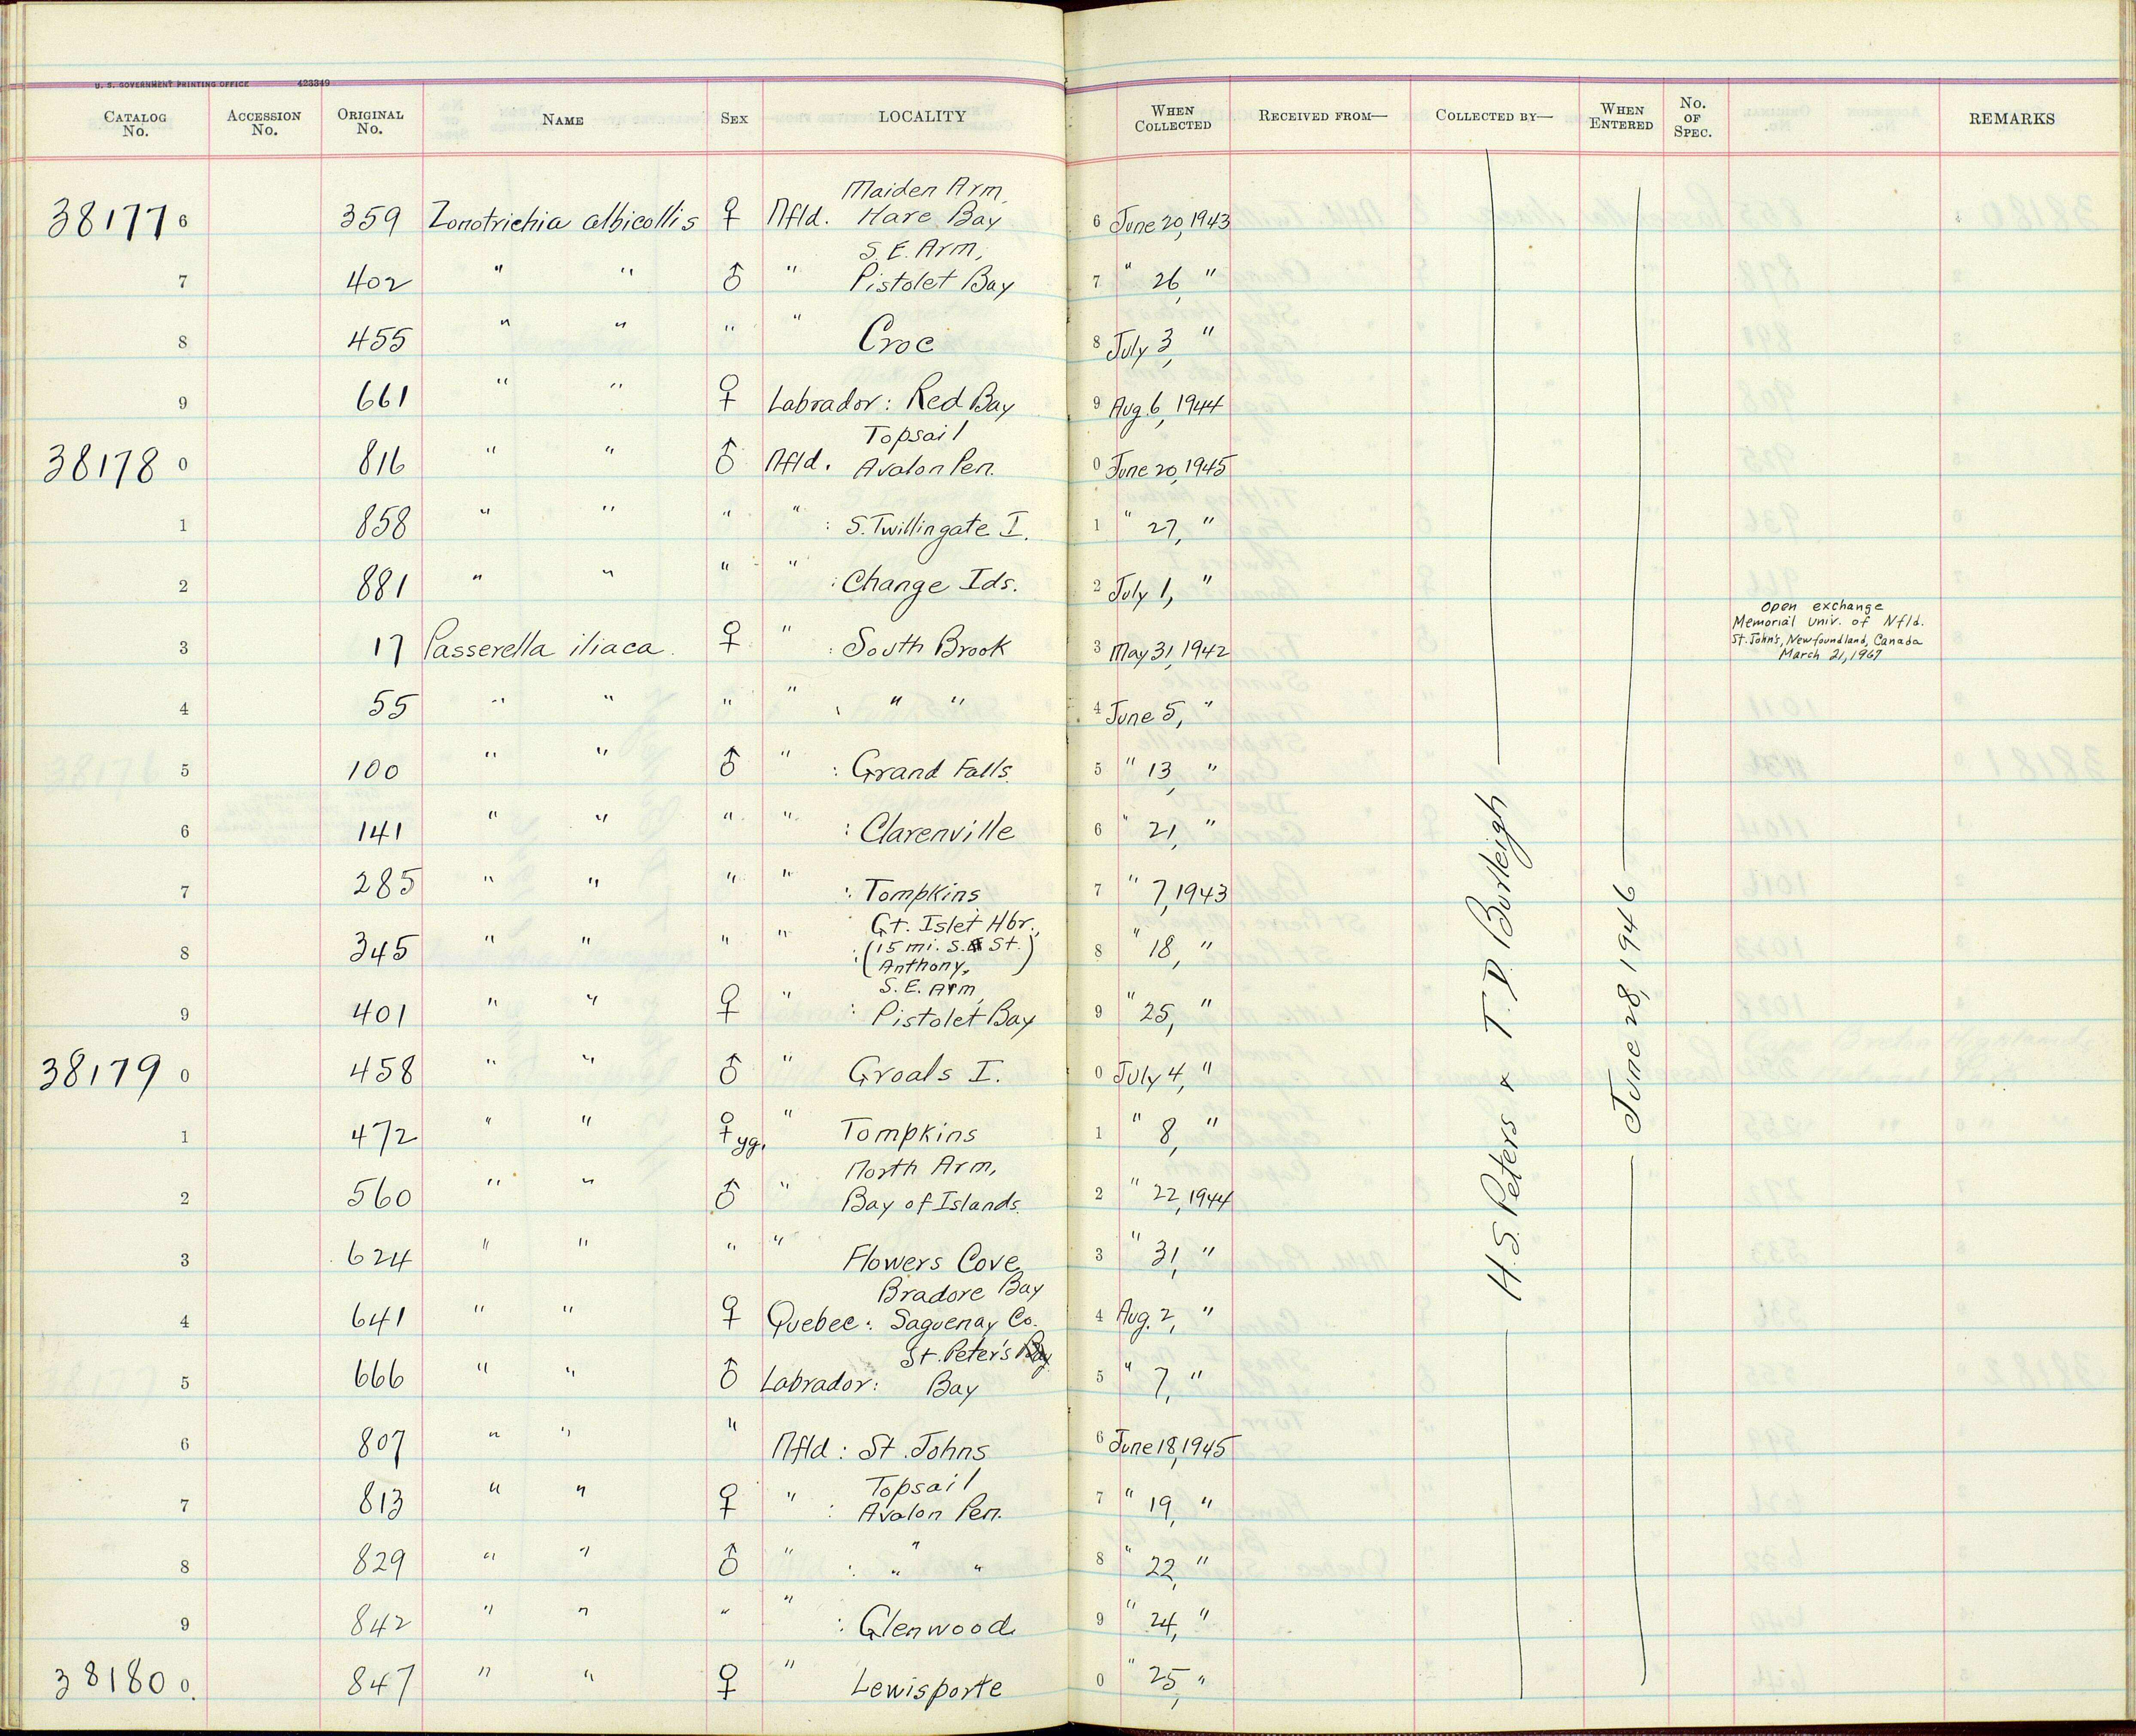 U. S. GOVERNMENT PRINTING OFFICE 423349
CATALOG No. ACCESSION No. ORIGINAL No. NAME SEX LOCALITY WHEN COLLECTED RECEIVED FROM— COLLECTED BY— WHEN ENTERED No. OF SPEC. REMARKS
Maiden Arm,
38177 6 359 Zonotrichia albicollis ♀ Nfld. Hare Bay 6 June 20, 1943
S. E. Arm,
7 402 " " ♂ " Pistolet Bay 7 " 26, "
8 455 " " " " Croc 8 July 3, "
9 661 " " ♀ Labrador: Red Bay 9 Aug. 6, 1944
Topsail
38178 0 816 " " ♂ Nfld. Avalon Pen. 0 June 20, 1945
1 858 " " " " : S. Twillingate I. 1 " 27, "
2 881 " " " " : Change Ids. 2 July 1, "
3 17 Passerella iliaca ♀ " : South Brook 3 May 31, 1942
Open exchange
Memorial Univ. of Nfld.
St. John's, Newfoundland, Canada
March 21, 1967
4 55 " " " " " " 4 June 5, "
5 100 " " ♂ " : Grand Falls 5 " 13, "
6 141 " " " " : Clarenville 6 " 21, "
7 285 " " " " : Tompkins 7 " 7, 1943
Gt. Islet Hbr.,
8 345 " " " " : (15 mi. S. St. 8 " 18, "
Anthony,)
S. E. Arm,
9 401 " " ♀ " : Pistolet Bay 9 " 25, "
38179 0 458 " " ♂ " Groals I. 0 July 4, "
1 472 " " ♀ yg. " Tompkins 1 " 8, "
North Arm,
2 560 " " ♂ " Bay of Islands. 2 " 22, 1944
3 624 " " " " Flowers Cove 3 " 31, "
Bradore Bay
4 641 " " ♀ Quebec: Saguenay Co. 4 Aug. 2, "
St. Peter's Bay
5 666 " " ♂ Labrador: Bay 5 " 7, "
6 807 " " " Nfld: St. Johns 6 June 18, 1945
Topsail
7 813 " " ♀ " : Avalon Pen. 7 " 19, "
8 829 " " ♂ " : " " " 8 " 22, "
9 842 " " " " : Glenwood 9 " 24, "
38180 0. 847 " " ♀ " Lewisporte 0 " 25, "
H. S. Peters & T. D. Burleigh
June 28, 1946